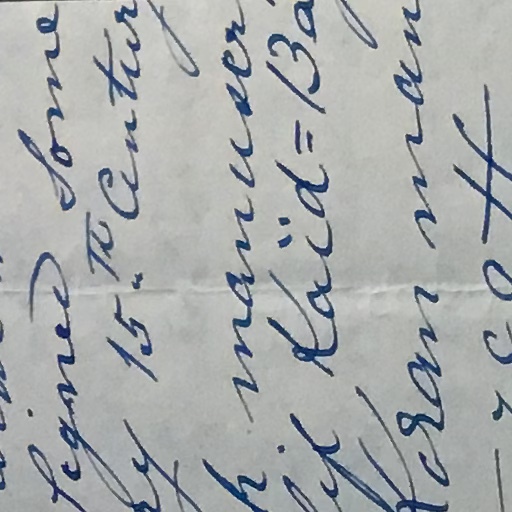 signed some
ry 15th Century
h manuscr
Kaïd=Ba
Koran man